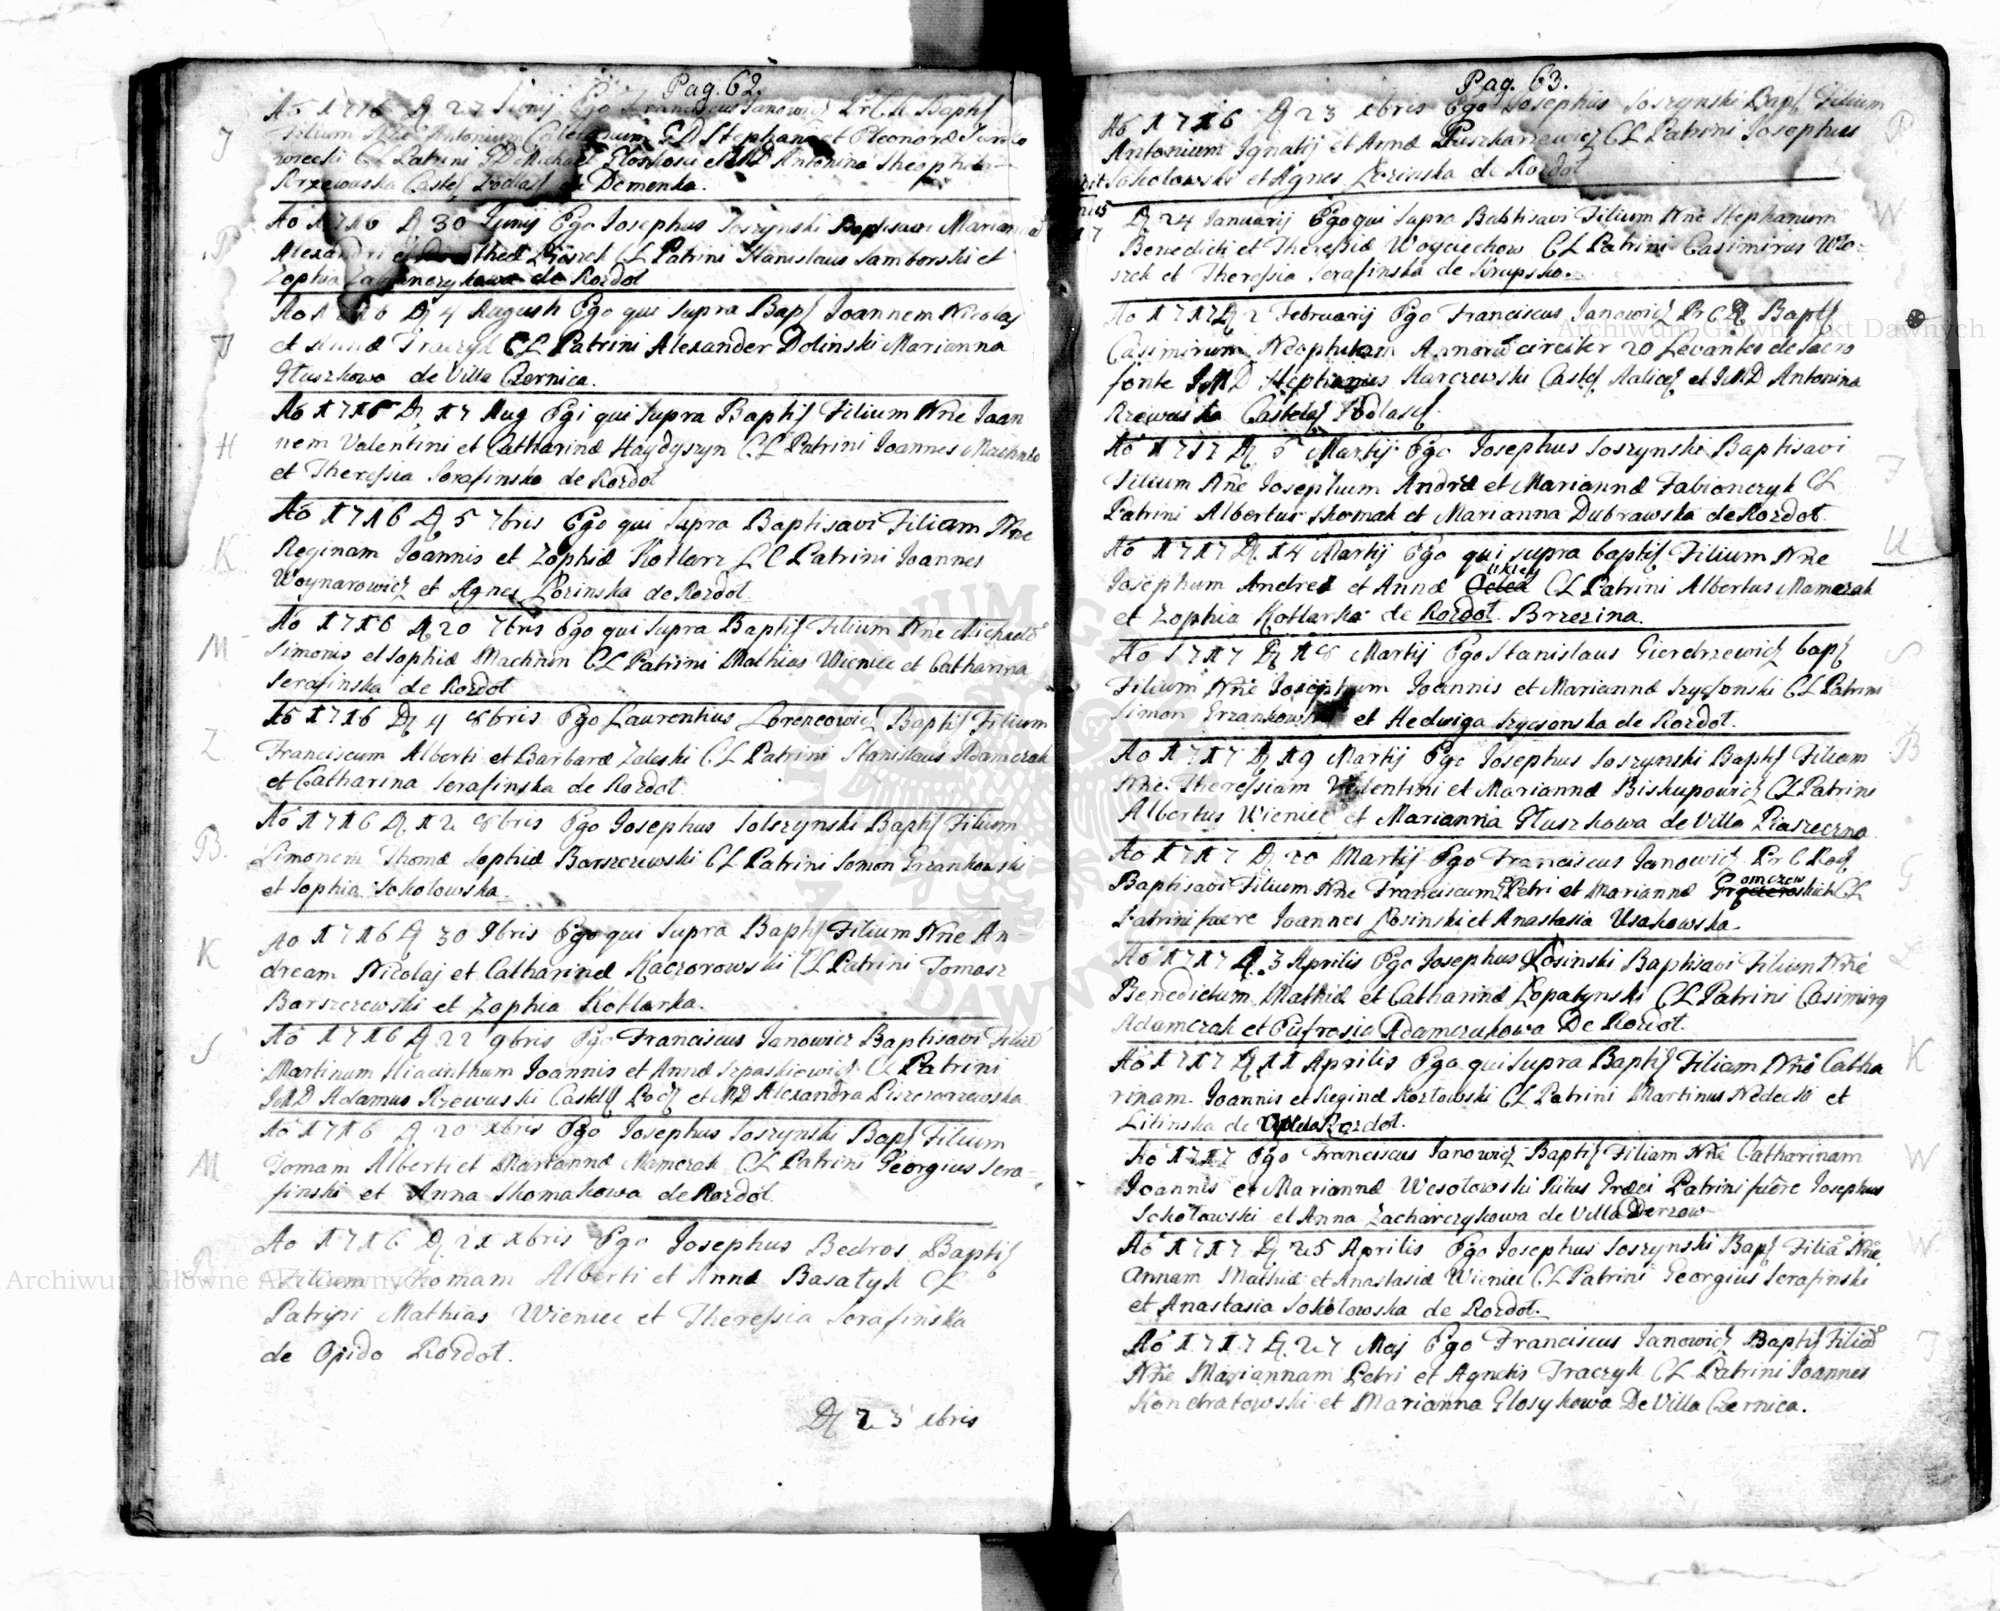 Pag. 62.
Ao 1716 D 27 Junij Ego Franciscus Janowicz Baptis
J
Filium Antonium GD Stephani et Eleonoræ
CL Patrini GD Michael et MD Antonina Theophila
Rzewuska Castel Podlas de Demenka.
Ao 1716 D 30 Junij Ego Josephus Soszynski Baptisavi
P
Alexandri et CL Patrini Stanislaus Samborski et
Zophia de Rozdoł
Ao 1716 D 4 Augusti Ego qui supra Bap Joannem Nicolaj
T
et Annæ Traczyk CL Patrini Alexander Dolinski Marianna
Głuszkowa de Villa Czernica.
Ao 1716 D 17 Aug Egi qui supra Baptis Filium Nne Joan
H
nem Valentini et Catharinæ Haydyszyn CL Patrini Joannes
et Theressia Serafinska de Rozdoł
Ao 1716 D 5 7bris Ego qui supra Baptisavi Filiam Nne
K
Reginam Joannis et Zophiæ Kotlarz LC Patrini Joannes
Woynarowicz et Agnes Łozinska de Rozdoł
Ao 1716 D 20 7bris Ego qui supra Baptis Filium Nne Michaele
M
Simonis et Sophiæ Machnin CL Patrini Mathias Wieniec et Catharina
Serafinska de Rozdoł
Ao 1716 D 4 8bris Ego Laurentius Lorencowicz Baptis Filium
Z
Franciscum Alberti et Barbaræ Zaleski CL Patrini Stanislaus Adamczak
et Catharina Serafinska de Rozdoł
Ao 1716 D 12 8bris Ego Josephus Solszynski Baptis Filium
B.
Simonem Thomæ Sophiæ Barszczewski CL Patrini Somon Grzankowski
et Sophia Sokołowska.
Ao 1716 D 30 9bris Ego qui supra Baptis Filium Nne An-
K
dream Nicolaj et Catharinæ Kaczorowski CL Patrini Tomasz
Barszczewski et Zophia Kotlarka.
Ao 1716 D 22 9bris Ego Franciscus Janowicz Baptisavi Filiũ
S
Martinum Hiacinthum Joannis et Annæ Szpaskiewicz CL Patrini
JMD Adamus Rzewuski Castell Pod et MD Alexandra
Ao 1716 D 20 xbris Ego Josephus Soszynski Bap Filium
M
Tomam Alberti et Mariannæ Mamczak CL Patrini Georgius Sera-
finski et Anna Thomakowa de Rozdoł
Ao 1716 D 21 xbris Ego Josephus Bedros Baptis
Filium Thomam Alberti et Annæ Basałyk CL
Patrini Mathias Wieniec et Theressia Serafinska
de Opido Rozdoł.
D 23 xbris
Pag. 63.
Ao 1716 D 23 xbris Ego Josephus Soszynski Bap Filium
P
Antonium Ignatij et Annæ Puszkarzewicz CL Patrini Josephus
Sokołowski et Agnes Łozinska de Rozdoł
D 24 Januarij Ego qui supra Babtisavi Filium Nne Stephanum
W
Benedicti et Theressiæ Woyciechow CL Patrini Casimirus Wło-
szek et Theressia Serafinska de Krupsko.
Ao 1717 D 2 Februarij Ego Franciscus Janowicz Baptis
Casimirum Neophitam Annorũ circiter 20 Levantes de Sacro
fonte JMD Stephanus Karczewski Castel Halicz et JMD Antonina
Rzewuska Castelas Podlasis.
Ao 1717 D 5 Martij Ego Josephus Soszynski Baptisavi
F
Filium Nne Josephum Andræ et Mariannæ Fabionczyk CL
Patrini Albertus Thomak et Marianna Dubrawska de Rozdoł
Ao 1717 D 14 Martij Ego qui supra baptis Filium Nne
U
Josephum Andreæ et Annæ CL Patrini Albertus Mamczak
et Zophia Kotlarka de Rozdoł Brzezina.
Ao 1717 D 18 Martij Ego Stanislaus Gierdrzewicz bap
S
Filium Nne Josephum Joannis et Mariannæ Szycsonski CL Patrini
Simon Grzankowski et Hedwiga Szycsonska de Rozdoł.
Ao 1717 D 19 Martij Ego Josephus Soszynski Baptis Filiam
B
Nne Theressiam Valentini et Mariannæ Biskupowicz CL Patrini
Albertus Wieniec et Marianna Głuszkowa de Villa Piaseczna
Ao 1717 D 20 Martij Ego Franciscus Janowicz Pr C Roz
G
Baptisavi Filium Nne Franciscum Petri et Mariannæ CL
Patrini fuere Joannes Łosinski et Anastasia Usakowska.
Ao 1717 D 3 Aprilis Ego Josephus Łosinski Baptisavi Filium Nne
Ł
Benedictum Mathiæ et Catharinæ Łopatynski CL Patrini Casimirg
Adamczak et Eufrosia Adamczukowa De Rozdoł.
Ao 1717 D 11 Aprilis Ego qui supra Baptis Filiam Nne Catha
K
rinam Joannis et Reginæ Kozłowski CL Patrini Martinus Nedecki et
Litinska de Rozdoł.
Ao 1717 Ego Franciscus Janowicz Baptis Filiam Nne Catharinam
W
Joannis et Mariannæ Wesołowski Ritus Græci Patrini fuêre Josephus
Sokołowski et Anna Zacharczykowa de Villa Derzow
Ao 1717 D 25 Aprilis Ego Josephus Soszynski Bap Filiã Nne
W
Annam Mathiæ et Anastasiæ Wieniec CL Patrini Georgius Serafinski
et Anastasia Sokołowska de Rozdoł.
Ao 1717 D 27 Maj Ego Franciscus Janowicz Baptis Filiã
T
Nne Mariannam Petri et Agnetis Traczyk CL Patrini Joannes
Kondratowski et Marianna Głosykowa De Villa Czernica.
Archiwum Główne Akt Dawnych
Archiwum Główne Akt Dawnych
ARCHIWUM GŁÓWNE AKT DAWNYCH